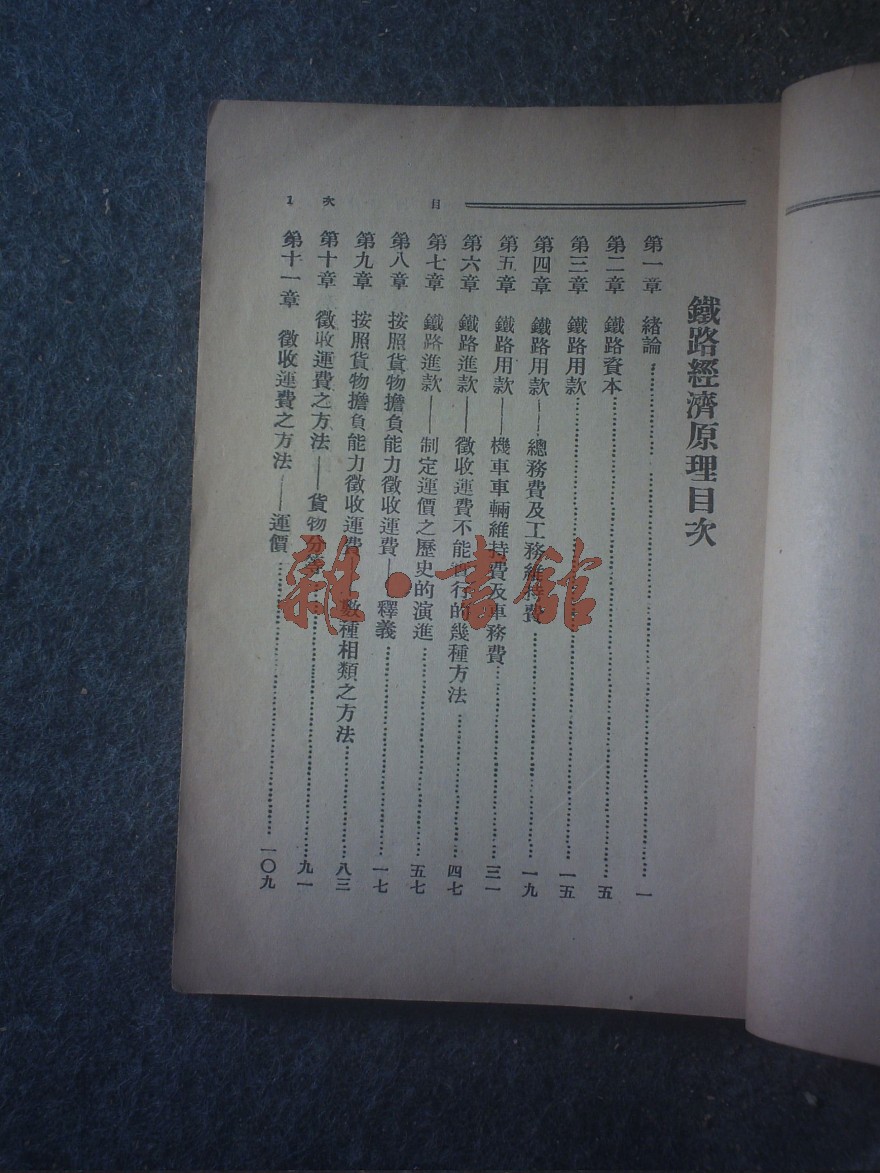 鐵路經濟原理目次
第一章 緒論……一
第二章 鐵路資本……五
第三章 鐵路用款……一五
第四章 鐵路用款——總務費及工務維持費……一九
第五章 鐵路用款——機車車輛維持費及車務費……三一
第六章 鐵路進款——徵收運費不能行的幾種方法……四七
第七章 鐵路進款——制定運價之歷史的演進……五七
第八章 按照貨物擔負能力徵收運費——釋義……一七
第九章 按照貨物擔負能力徵收運費——數種相類之方法……八三
第十章 徵收運費之方法——貨物分等……九一
第十一章 徵收運費之方法——運價……一〇九
目次 1
雜·書館